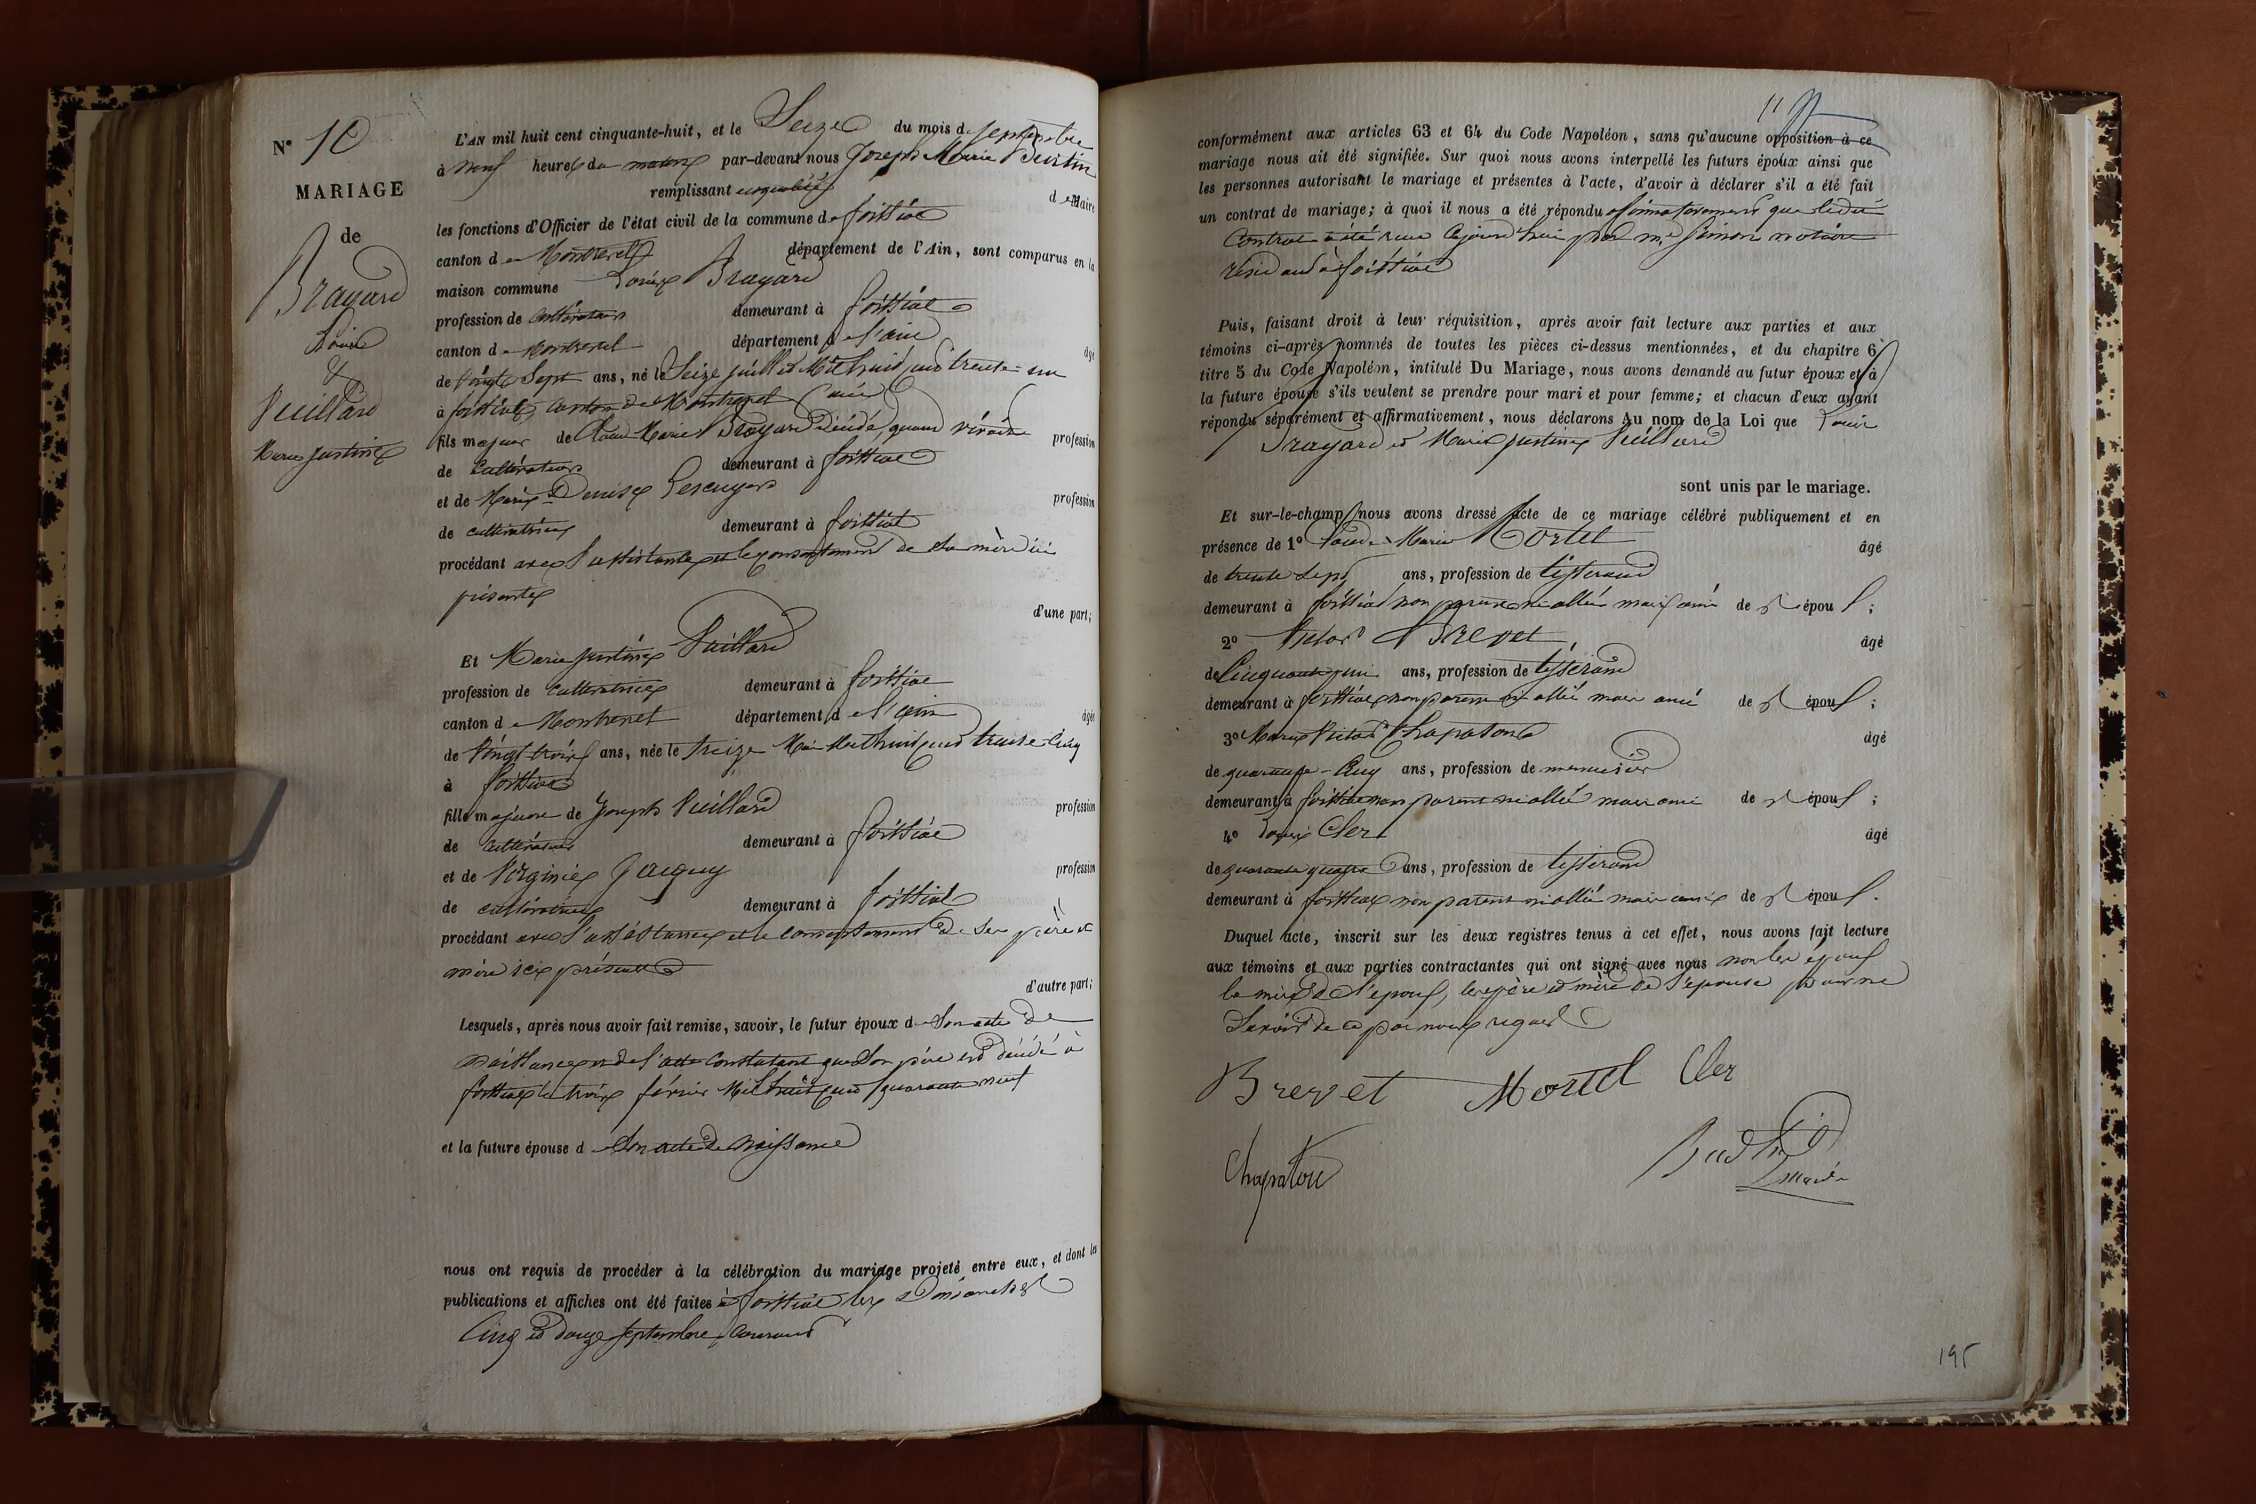 N° 10
MARIAGE
de
Brayard
Louis
&
Vuillard
Marie Justine
L'AN mil huit cent cinquante-huit, et le Seize du mois de septembre
à neuf heures du matin par-devant nous Joseph Marie Burtin
remplissant en qualité de Maire
les fonctions d'Officier de l'état civil de la commune de foissiat
canton de Montrevel département de l'Ain, sont comparus en la
maison commune Louis Brayard
profession de cultivateur demeurant à foissiat
canton de Montrevel département de l'ain âgé
de vingt Sept ans, né le Seize juillet Mil huit cent trente-un
à foissiat, canton de Montrevel (ain)
fils majeur de Claude Marie Brayard décédé, quand vivait profession
de cultivateur demeurant à foissiat
et de Marie Denise profession
de cultivatrice demeurant à foissiat
procédant avec l'assistance et le consentement de sa mère ici
présente
d'une part;
Et Marie Justine Vuillard
profession de cultivatrice demeurant à foissiat
canton de Montrevel département de l'ain âgée
de vingt trois ans, née le treize Mai Mil huit cent trente-cinq
à foissiat
fille majeure de Joseph Vuillard profession
de cultivateur demeurant à foissiat
et de Virginie profession
de cultivatrice demeurant à foissiat
procédant avec l'assistance et le consentement de ses père et
mère ici présents
d'autre part;
Lesquels, après nous avoir fait remise, savoir, le futur époux de Son acte de
naissance et de l'acte constatant que Son père est décédé à
foissiat le trois février Mil huit cent quarante neuf
et la future épouse de Son acte de naissance
nous ont requis de procéder à la célébration du mariage projeté entre eux, et dont les
publications et affiches ont été faites à foissiat les Dimanches
cinq et douze septembre courant
11
conformément aux articles 63 et 64 du Code Napoléon, sans qu'aucune opposition à ce
mariage nous ait été signifiée. Sur quoi nous avons interpellé les futurs époux ainsi que
les personnes autorisant le mariage et présentes à l'acte, d'avoir à déclarer s'il a été fait
un contrat de mariage; à quoi il nous a été répondu affirmativement que ledit
Contrat a été reçu cejourd'hui par Me Simon notaire
résidant à foissiat
Puis, faisant droit à leur réquisition, après avoir fait lecture aux parties et aux
témoins ci-après nommés de toutes les pièces ci-dessus mentionnées, et du chapitre 6
titre 5 du Code Napoléon, intitulé Du Mariage, nous avons demandé au futur époux et à
la future épouse s'ils veulent se prendre pour mari et pour femme; et chacun d'eux ayant
répondu séparément et affirmativement, nous déclarons Au nom de la Loi que Louis
Brayard et Marie Justine Vuillard
sont unis par le mariage.
Et sur-le-champ nous avons dressé acte de ce mariage célébré publiquement et en
présence de 1° Claude Marie Mortel âgé
de trente Sept ans, profession de tisserand
demeurant à foissiat non parent ni allié mais ami de s époux;
2° Victor Brevet âgé
de Cinquante un ans, profession de tisserand
demeurant à foissiat non parent ni allié mais ami de s époux;
3° Marie Victor Chapatou âgé
de quarante-Cinq ans, profession de menuisier
demeurant à foissiat non parent ni allié mais ami de s époux;
4° Louis Cler âgé
de quarante quatre ans, profession de tisserand
demeurant à foissiat non parent ni allié mais ami de s époux.
Duquel acte, inscrit sur les deux registres tenus à cet effet, nous avons fait lecture
aux témoins et aux parties contractantes qui ont signé avec nous non les époux
la mère de l'époux, les père et mère de l'épouse pour ne
Savoir de ce par nous requis
Brevet Mortel Cler
Chapatou Burtin
maire
195